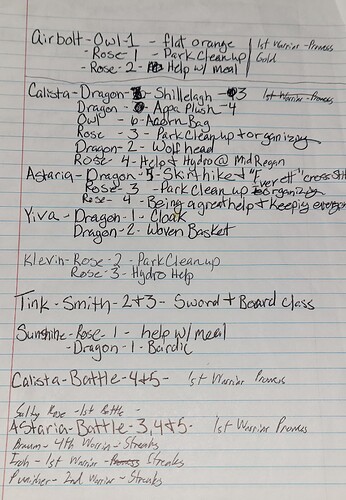 Airbolt-Owl-1 - flat orange 1st Warrior-Prowess
- Rose 1 - Park Clean up Gold
- Rose-2- Help w/ meal
Calista-Dragon- Shillelagh 3 1st Warrior-Prowess
Dragon - Appa Plush-4
Owl - 6-Acorn Bag
Rose - 3 - Park Clean up + organizing
Dragon-2- Wolf head
Rose-4-Help + Hydro @ Mid Regan
Astaria-Dragon-5-Skirt hiked + "Everett" cross stit
Rose-3- Park Clean up organizing
Rose-4-Being a great help + keeping
Yiva-Dragon-1- Cloak
Dragon-2- Woven Basket
Klevin-Rose-2-Park Clean up
Rose-3-Hydro Help
Tink-Smith-2+3- Sword + Board class
Sunshine-Rose-1- help w/ meal
-Dragon-1- Bardic
Calista-Battle-4+5- 1st Warrior Prowess
Salty Rose -1st Battle-
Astaria-Battle-3,4+5- 1st Warrior Prowess
- 4th Warrior-Streaks
Irish-1st Warrior- Streaks
Punisher-2nd Warrior-Streaks